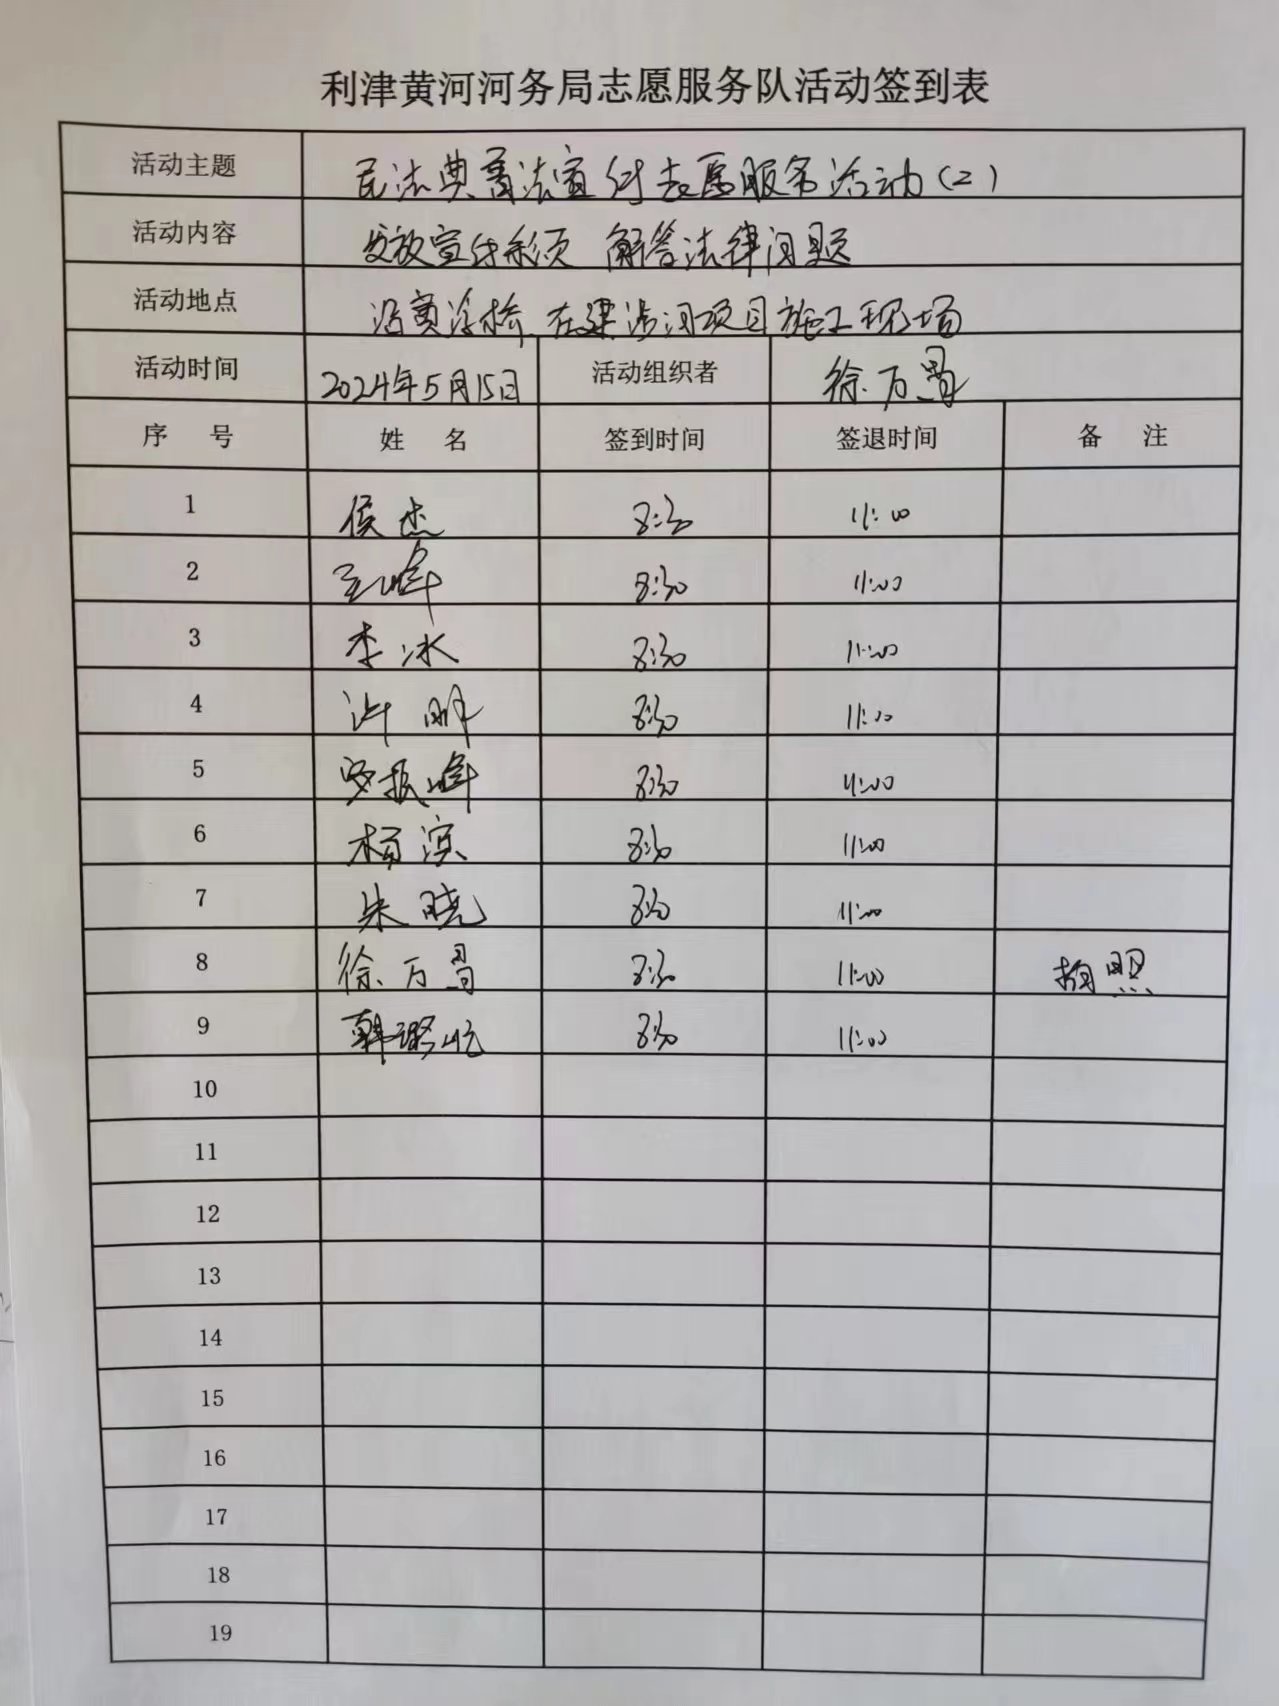 利津黄河河务局志愿服务队活动签到表
活动主题 民法典普法宣传志愿服务活动(2)
活动内容 发放宣传彩页 解答法律问题
活动地点 沿黄浮桥、在建涉河项目施工现场
活动时间 2024年5月15日 活动组织者 徐万昌
序 号 姓 名 签到时间 签退时间 备 注
1 侯杰 8:30 11:00
2 王峰 8:30 11:00
3 李冰 8:30 11:00
4 许明 8:30 11:00
5 安振峰 8:30 11:00
6 杨滨 8:30 11:00
7 朱晓 8:30 11:00
8 徐万昌 8:30 11:00 拍照
9 韩 8:30 11:00
10
11
12
13
14
15
16
17
18
19